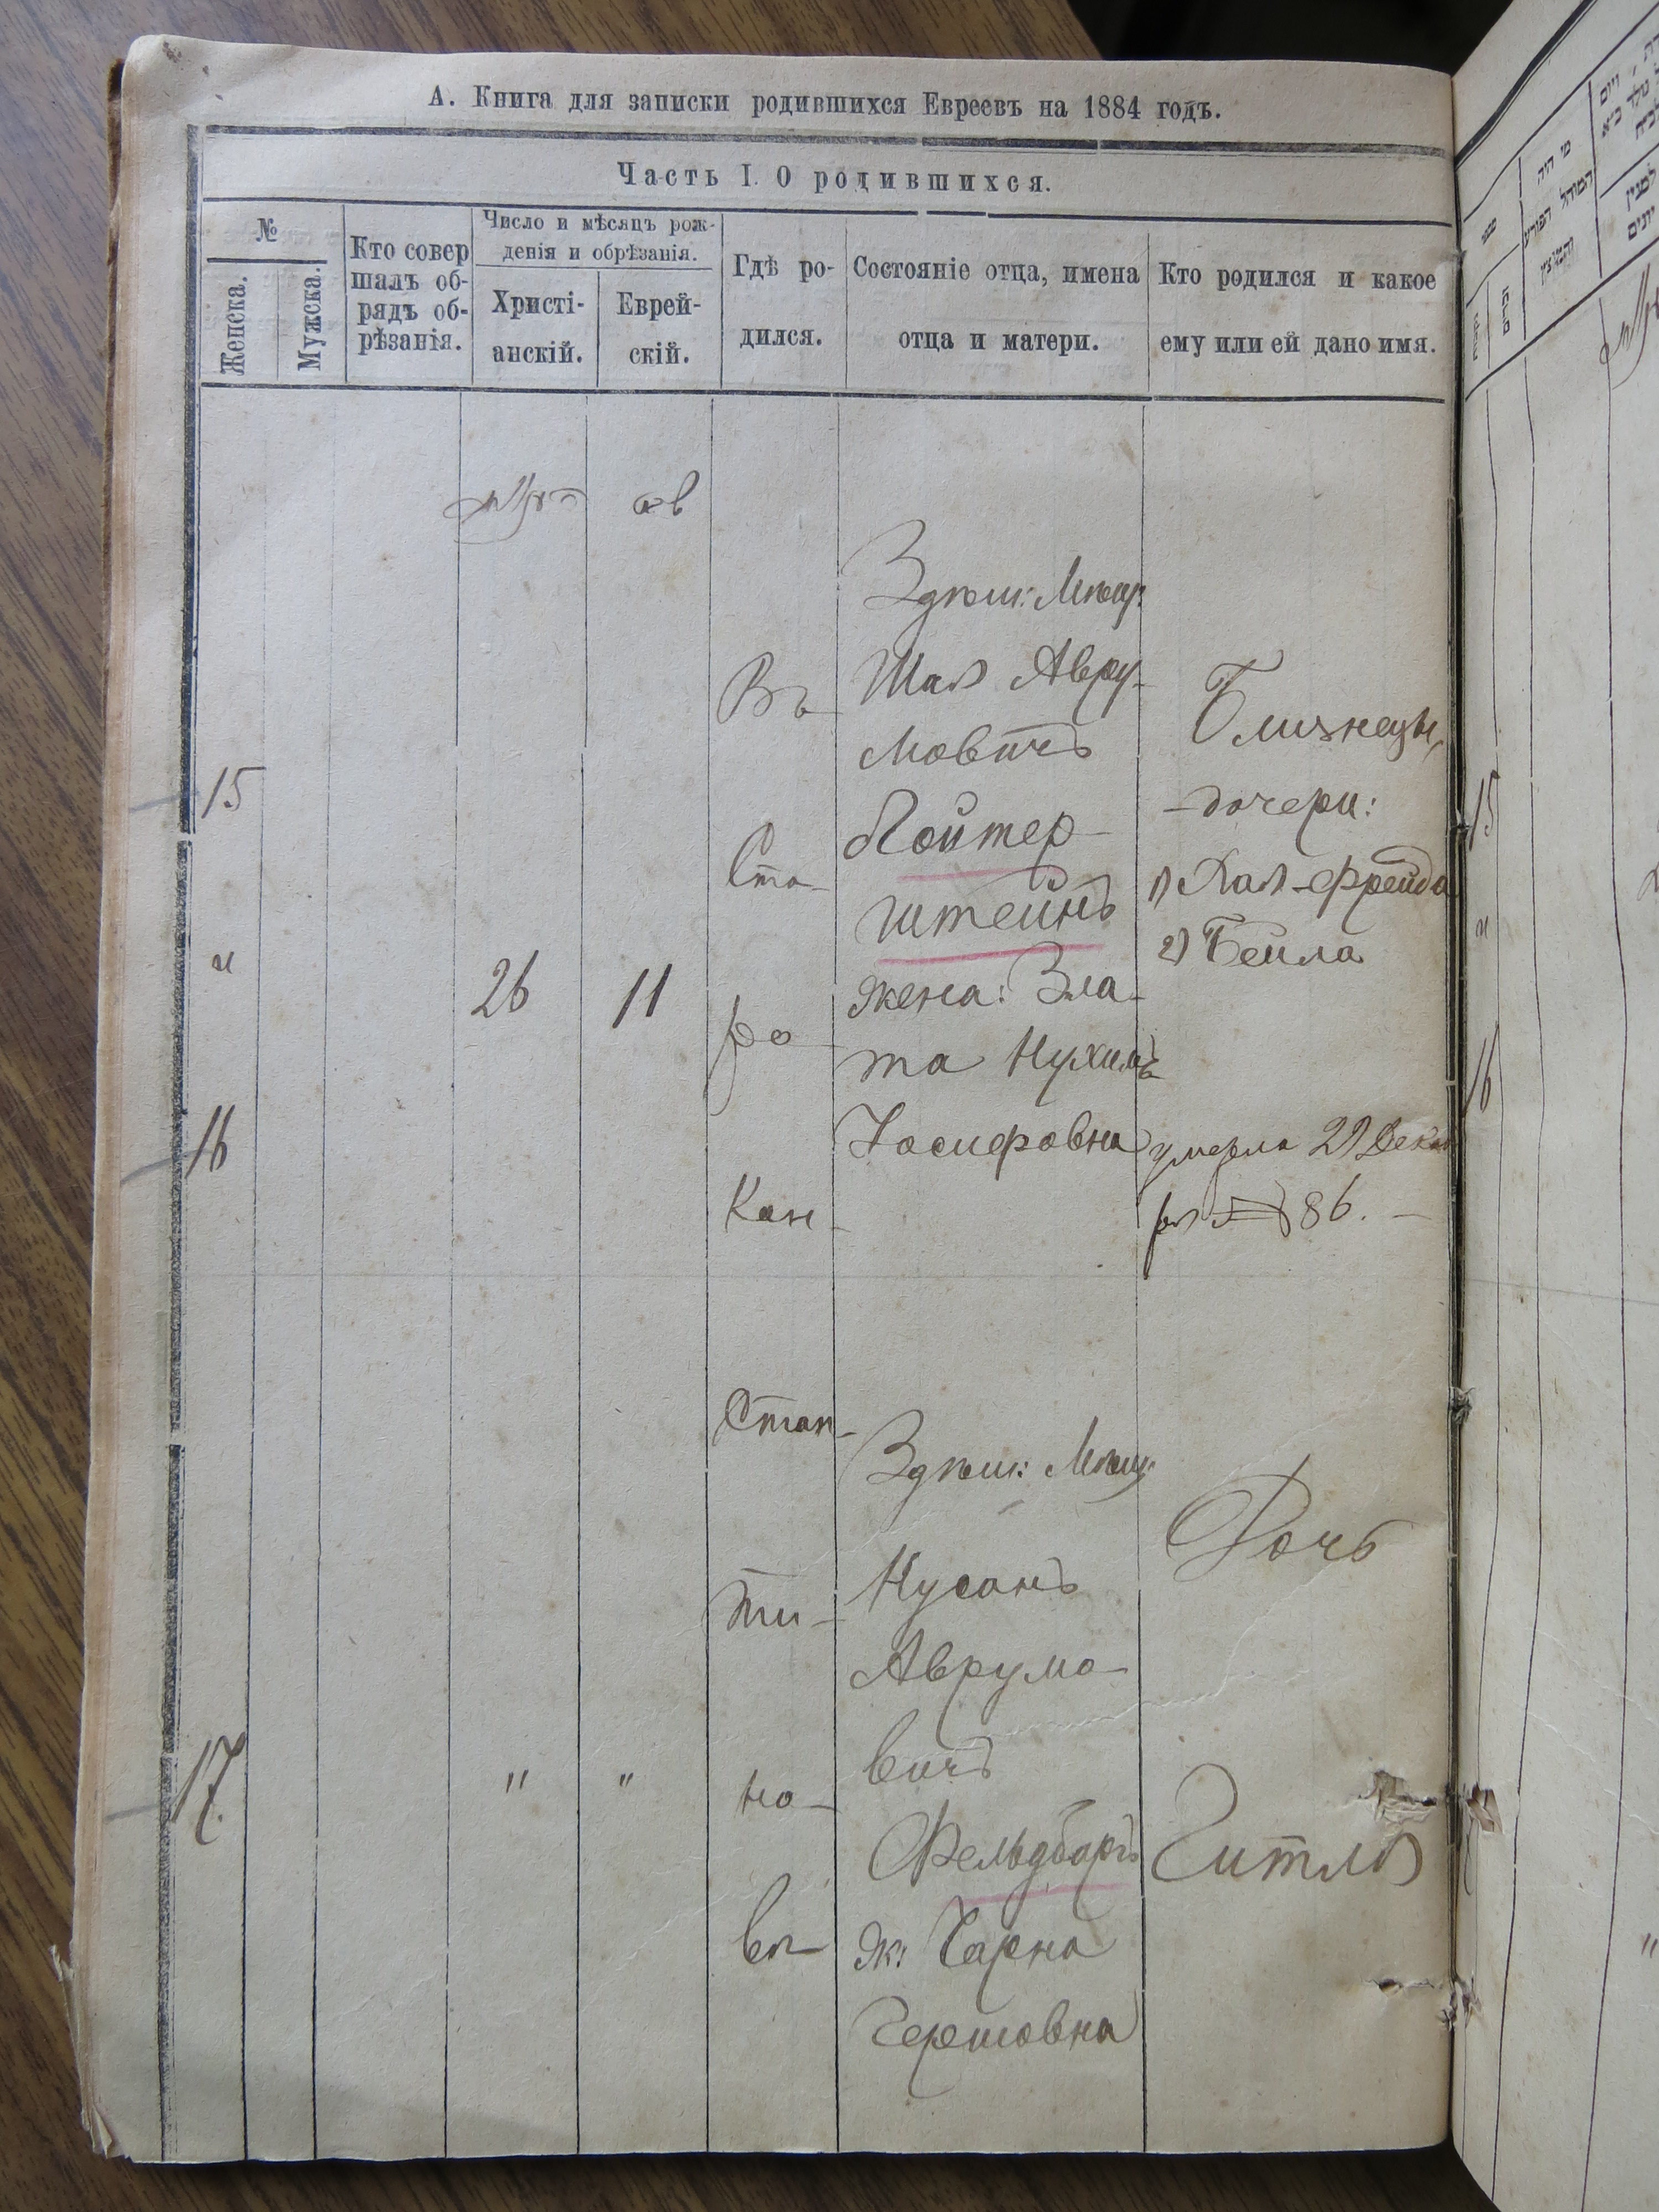 А. Книга для записки родившихся Евреевъ на 1884 годъ.
Часть I. О родившихся.
№
Женска.
Мужска.
Кто совер
шалъ об-
рядъ об-
рѣзанія.
Число и мѣсяцъ рож-
денія и обрѣзанія.
Христі-
анскій.
Еврей-
скій.
Гдѣ ро-
дился.
Состояніе отца, имена
отца и матери.
Кто родился и какое
ему или ей дано имя.
ав
15
и
16
26
11
Въ
Ста-
ро
Кон-
Стан-
ти-
но-
вѣ
Здѣш: Мѣщ:
Авру-
мовичъ
Пойтер-
штейнъ
жена: Зла-
та Нухимъ
Іосифовна
Близнецы,
дочери:
1) Хая-Фрейда
2) Бейла
умерла 29 Декаб
ря № 86. -
17
"
"
Здѣш: Мѣщ:
Нусанъ
Аврумо-
вичъ
Фельдбаръ
ж: Чарна
Гершовна
Дочь
Гитля
15
и
16
מי היה
המוהל